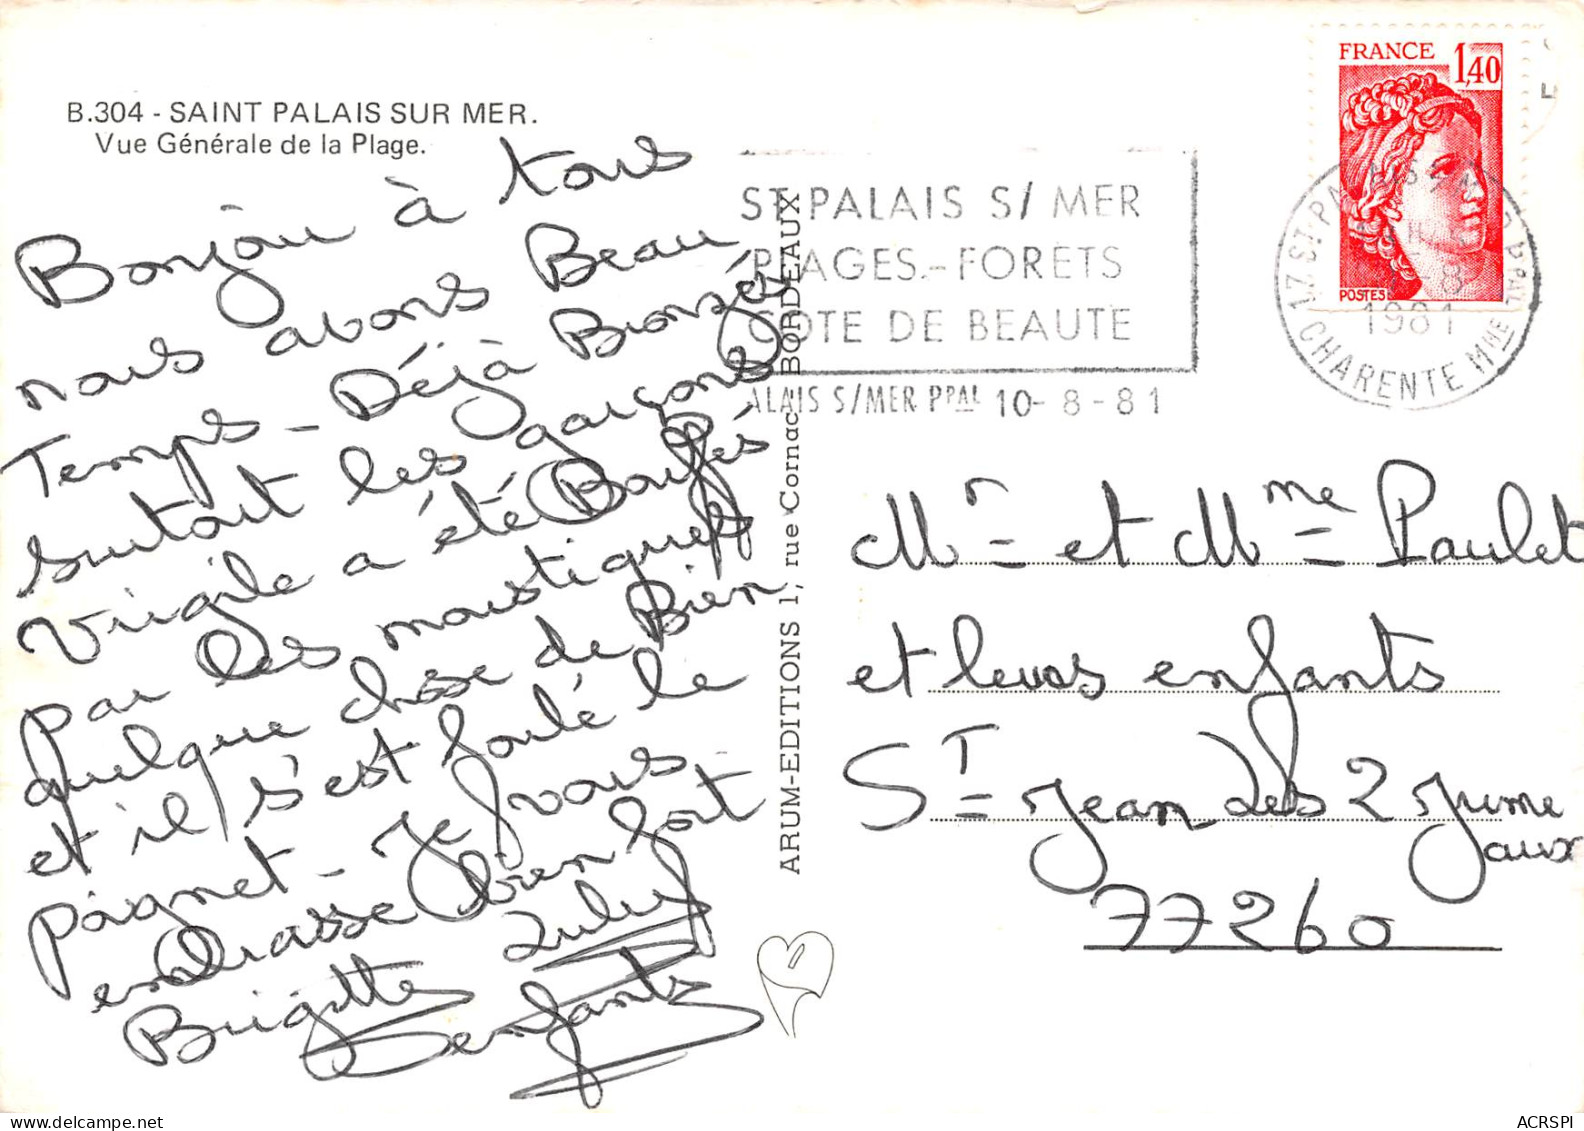 B.304 - SAINT PALAIS SUR MER.
Vue Générale de la Plage.
Bonjour à tous
nous avons Beau
Temps - Déjà Bronzés
surtout les garçons
Virgile a été Bouffés
par les moustiques
quelque chose de Bien
et il s'est foulé le
poignet - Je vous
embrasse bien fort
Brigitte
enfants
ARUM-EDITIONS 1, rue Cornac - BORDEAUX
ST PALAIS S/ MER
PLAGES - FORETS
COTE DE BEAUTE
ALAIS S/MER PPAL 10-8-81
FRANCE 1,40
POSTES
17 ST PALAIS S/MER PPAL
8
1981
CHARENTE MME
Mr et Mme Paulet
et leurs enfants
ST Jean des 2 Jume
aux
77260
ACRSPI